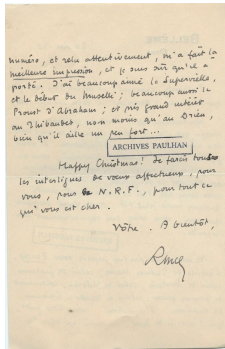 numéro, et relu attentivement, m'a fait la
meilleure impression, et je suis sûr qu'il a
porté. J'ai beaucoup aimé le Supervielle,
et le début du Muselli; beaucoup aussi le
Proust d'Abraham; et pris grand intérêt
au Thibaudet, non moins qu'au Drieu,
bien qu'il aille un peu fort...
ARCHIVES PAULHAN
Happy Christmas! Je farcis tous
les interlignes de vœux affectueux, pour
vous, pour la N.R.F., pour tout ce
qui vous est cher.
Vôtre. A bientôt,